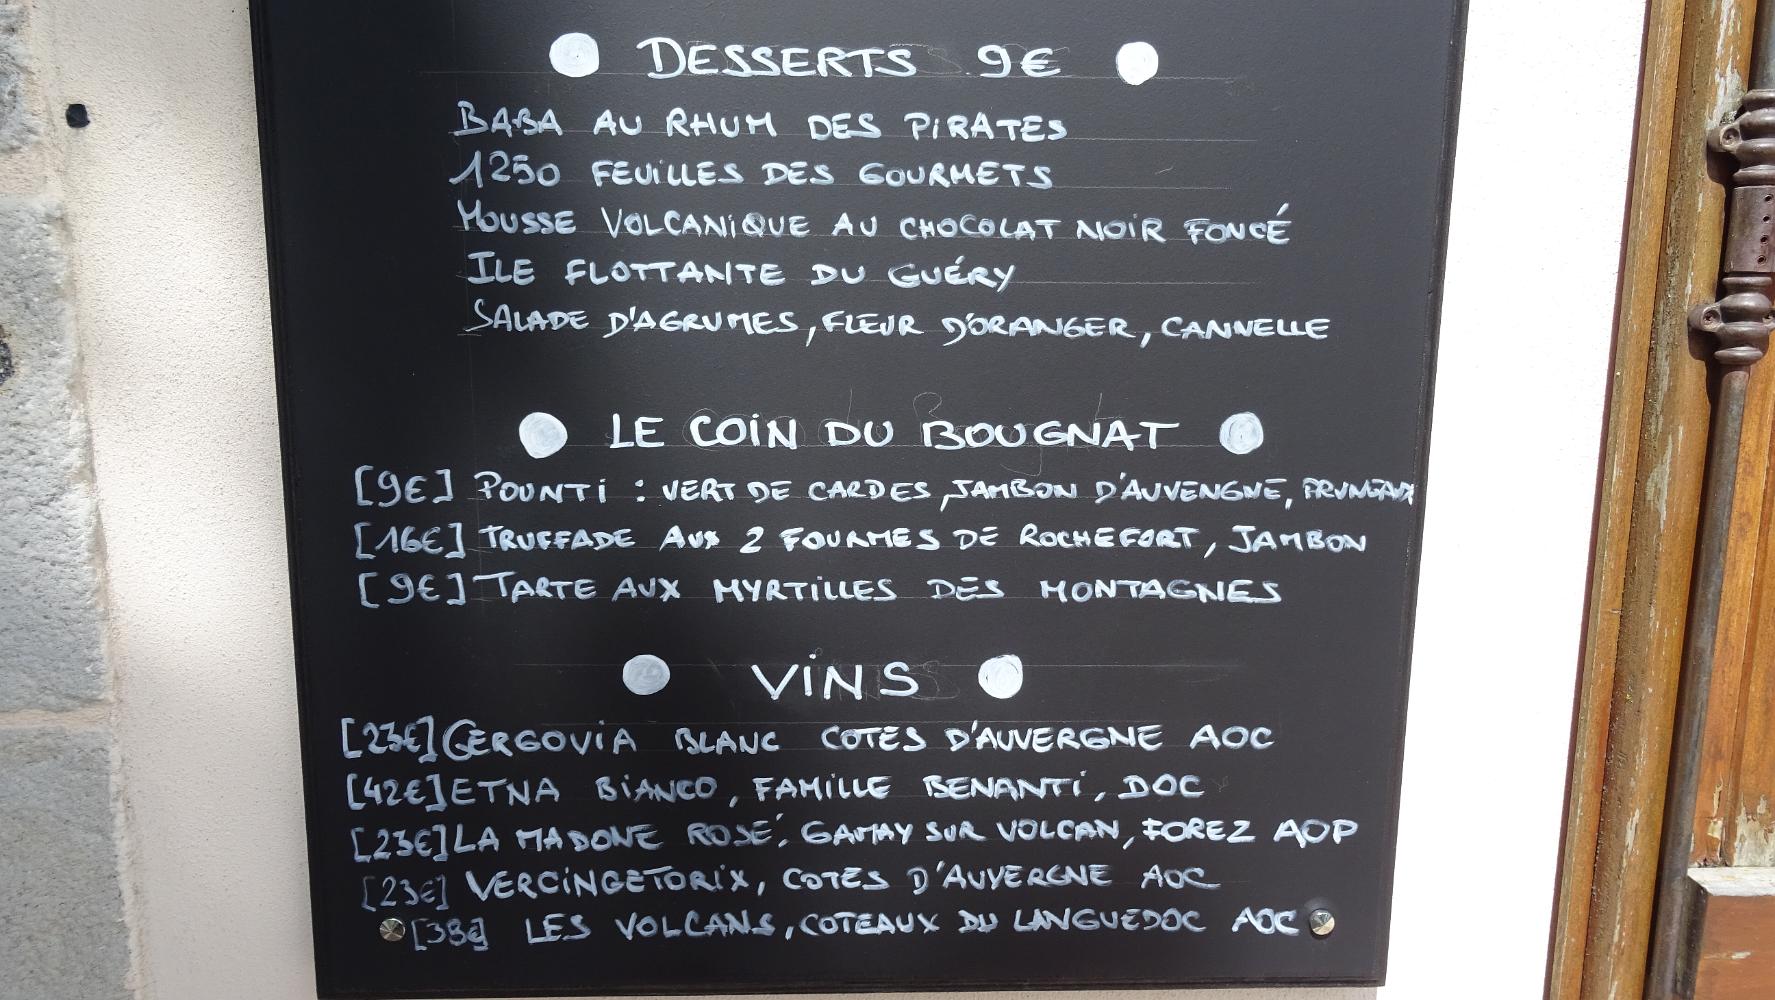 DESSERTS 9€
BABA AU RHUM DES PIRATES
1250 FEUILLES DES GOURMETS
MOUSSE VOLCANIQUE AU CHOCOLAT NOIR FONCÉ
ILE FLOTTANTE DU GUÉRY
SALADE D'AGRUMES, FLEUR D'ORANGER, CANNELLE
LE COIN DU BOUGNAT
[9€] POUNTI : VERT DE CARDES, JAMBON D'AUVERGNE, PRUNEAUX
[16€] TRUFFADE AUX 2 FOURMES DE ROCHEFORT, JAMBON
[9€] TARTE AUX MYRTILLES DES MONTAGNES
VINS
[23€] GERGOVIA BLANC COTES D'AUVERGNE AOC
[42€] ETNA BIANCO, FAMILLE BENANTI, DOC
[23€] LA MADONE ROSÉ, GAMAY SUR VOLCAN, FOREZ AOP
[23€] VERCINGETORIX, COTES D'AUVERGNE AOC
[38€] LES VOLCANS, COTEAUX DU LANGUEDOC AOC